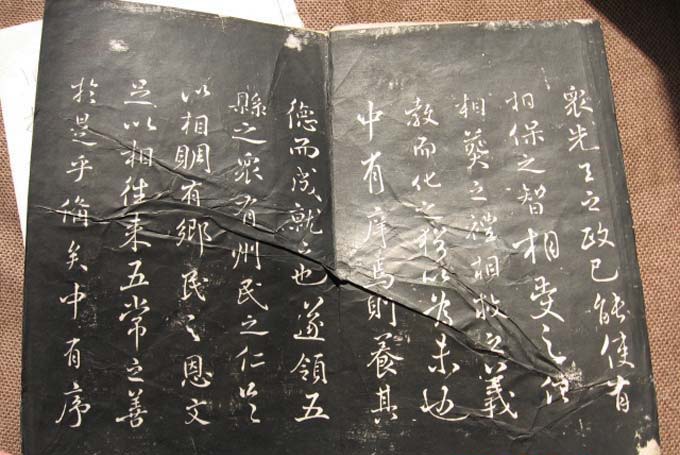 衆先王之政已能使有
相保之智相受之信
相葬之禮相救之義
教而化之猶以为未也
中有庠焉則養其
德而成就之也遂領五
縣之衆有州民之仁足
以相賙有鄉民之恩文
足以相往来五常之善
於是乎備矣中有序